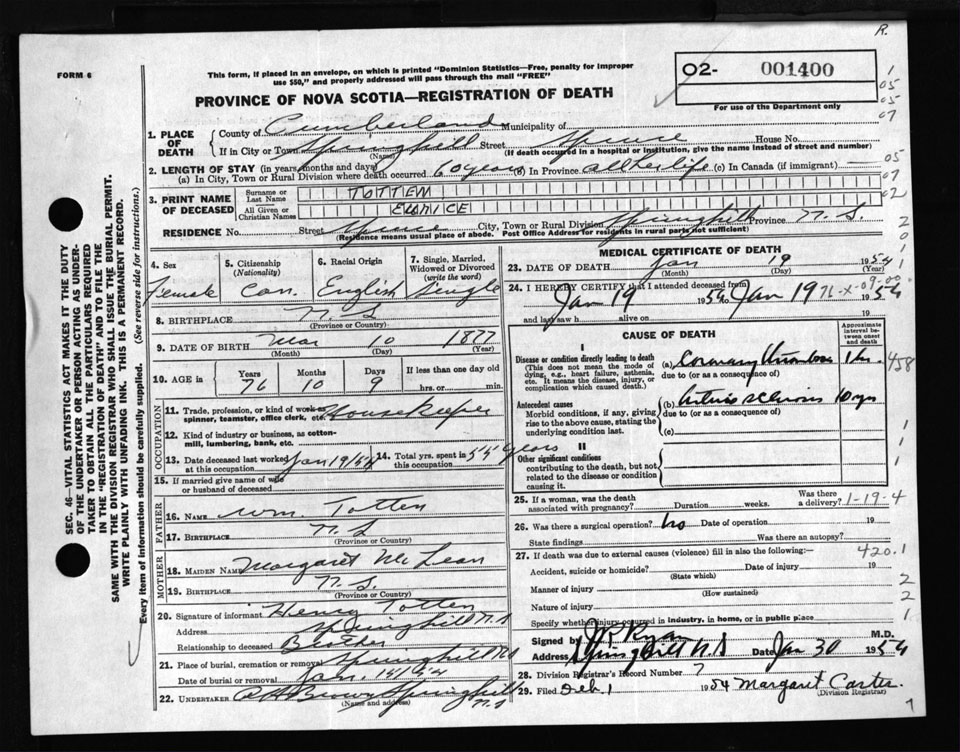 R.
FORM 6
This form, if placed in an envelope, on which is printed "Dominion Statistics—Free, penalty for improper
use $50," and properly addressed will pass through the mail "FREE"
02- 001400
For use of the Department only
PROVINCE OF NOVA SCOTIA—REGISTRATION OF DEATH
1. PLACE OF DEATH
County of Cumberland Municipality of
If in City or Town Springhill Street Spruce House No.
(Name) (If death occurred in a hospital or institution, give the name instead of street and number)
2. LENGTH OF STAY (in years, months and days)
(a) In City, Town or Rural Division where death occurred 60 years (b) In Province all her life (c) In Canada (if immigrant) —
3. PRINT NAME OF DECEASED
Surname or Last Name TOTTEN
All Given or Christian Names EUNICE
RESIDENCE No. Street Spruce City, Town or Rural Division Springhill Province N. S.
(Residence means usual place of abode. Post Office Address for residents in rural parts not sufficient)
4. Sex Female
5. Citizenship (Nationality) Can.
6. Racial Origin English
7. Single, Married, Widowed or Divorced (write the word) Single
8. BIRTHPLACE N. S.
(Province or Country)
9. DATE OF BIRTH Mar 10 1877
(Month) (Day) (Year)
10. AGE in Years 76 Months 10 Days 9 If less than one day old hrs. or min.
OCCUPATION
11. Trade, profession, or kind of work as spinner, teamster, office clerk, etc. Housekeeper
12. Kind of industry or business, as cotton-mill, lumbering, bank, etc.
13. Date deceased last worked at this occupation Jan 19/54
14. Total yrs. spent in this occupation 55 years
15. If married give name of wife or husband of deceased
FATHER
16. NAME Wm. Totten
17. BIRTHPLACE N. S.
(Province or Country)
MOTHER
18. MAIDEN NAME Margaret McLean
19. BIRTHPLACE N. S.
(Province or Country)
20. Signature of informant Henry Totten
Address Springhill N.S
Relationship to deceased Brother
21. Place of burial, cremation or removal Springhill N.S
Date of burial or removal Jan.
22. UNDERTAKER Brown Springhill N.S
(Name and address)
MEDICAL CERTIFICATE OF DEATH
23. DATE OF DEATH Jan 19 1954
(Month) (Day) (Year)
24. I HEREBY CERTIFY that I attended deceased from
Jan 19 1954 to Jan 19 1954
and last saw h alive on 19
CAUSE OF DEATH
Approximate interval between onset and death
I
Disease or condition directly leading to death
(This does not mean the mode of dying, e.g., heart failure, asthenia, etc. It means the disease, injury, or complication which caused death.)
(a) Coronary thrombosis 1 hr.
due to (or as a consequence of)
Antecedent causes
Morbid conditions, if any, giving rise to the above cause, stating the underlying condition last.
(b) Arteriosclerosis 10 yrs
due to (or as a consequence of)
(c)
II
Other significant conditions
contributing to the death, but not related to the disease or condition causing it.
25. If a woman, was the death associated with pregnancy? Duration weeks. Was there a delivery? 1-19-4
26. Was there a surgical operation? no Date of operation 19
State findings Was there an autopsy?
27. If death was due to external causes (violence) fill in also the following:— 420.1
Accident, suicide or homicide? Date of injury 19
(State which)
Manner of injury
(How sustained)
Nature of injury
Specify whether injury occurred in industry, in home, or in public place
Signed by Ryan M.D.
Address Springhill N.S Date Jan 30 1954
28. Division Registrar's Record Number 7
29. Filed Feb. 1 1954 Margaret Carter.
(Division Registrar)
SEC. 46—VITAL STATISTICS ACT MAKES IT THE DUTY
OF THE UNDERTAKER OR PERSON ACTING AS UNDER-
TAKER TO OBTAIN ALL THE PARTICULARS REQUIRED
IN THE "REGISTRATION OF DEATH" AND TO FILE THE
SAME WITH THE DIVISION REGISTRAR WHO SHALL ISSUE THE BURIAL PERMIT.
WRITE PLAINLY WITH UNFADING INK. THIS IS A PERMANENT RECORD.
Every item of information should be carefully supplied. (See reverse side for instructions.)